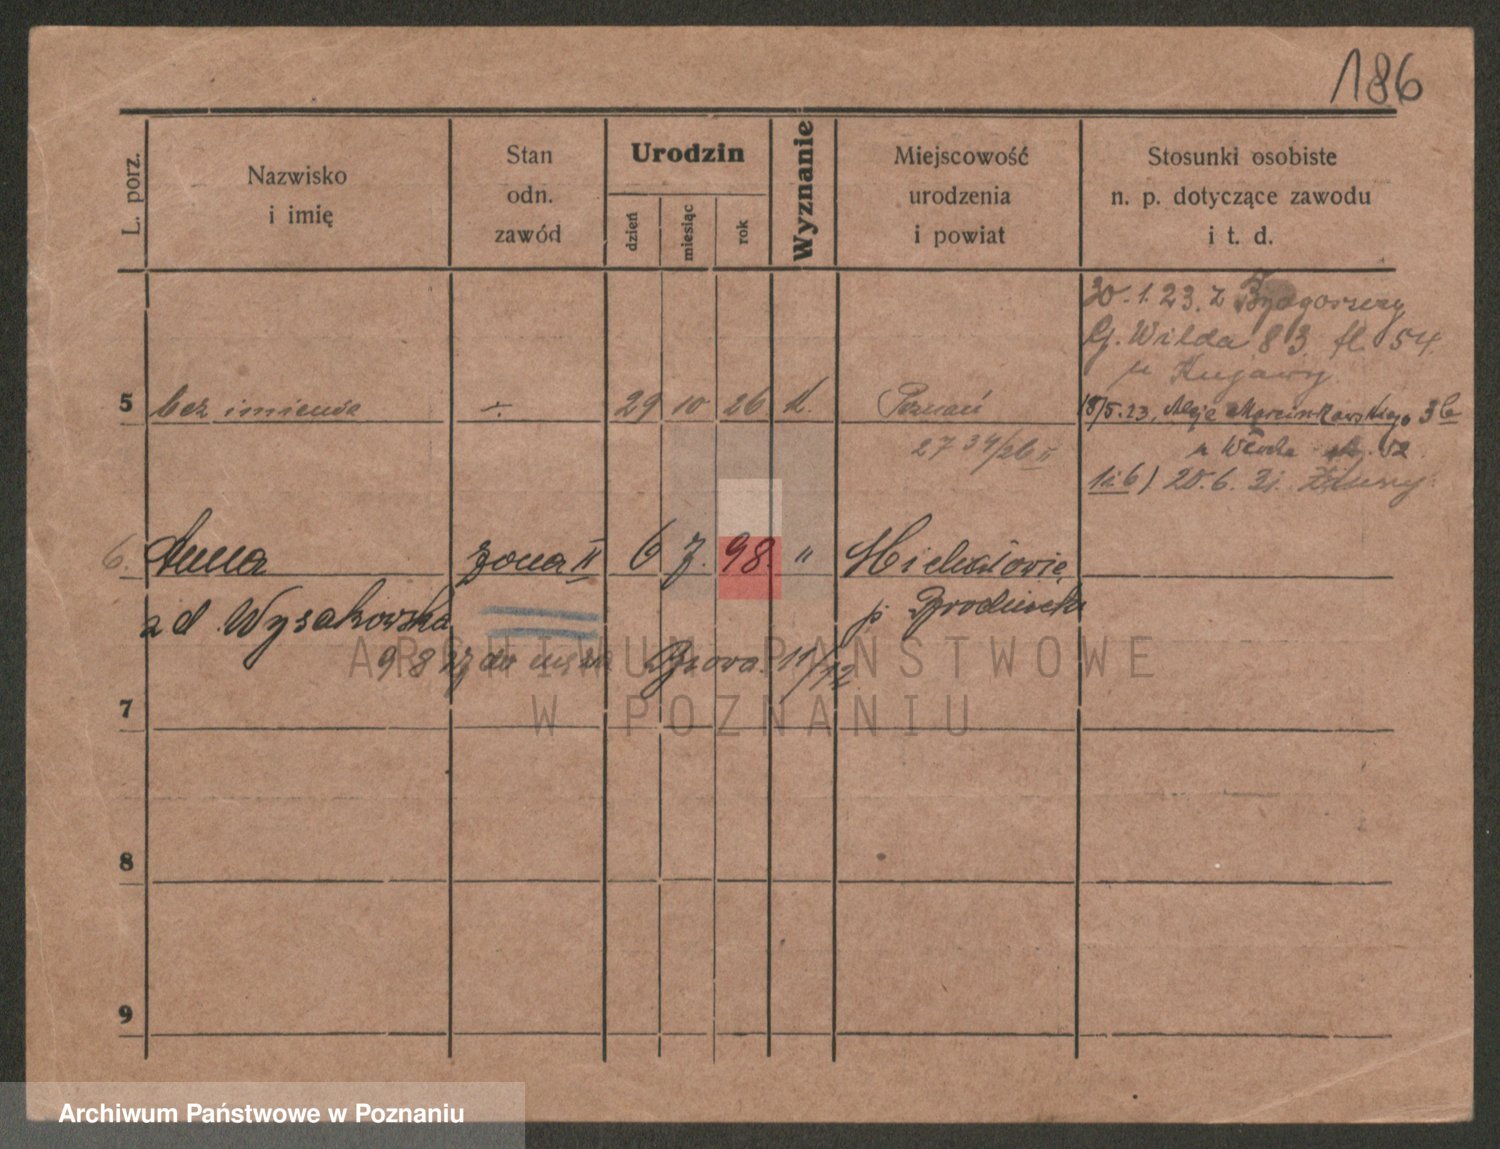 186
L. porz.
Nazwisko
i imię
Stan
odn.
zawód
Urodzin
dzień
miesiąc
rok
Wyznanie
Miejscowość
urodzenia
i powiat
Stosunki osobiste
n. p. dotyczące zawodu
i t. d.
30.1.23. z Bydgoszczy
G. Wilda 83 54
u Kujawy
5 bez imienia ÷ 29 10 26 k. Poznań
18/5.23, Aleje Marcinkowskiego 3b
27 34/26 II
1i6) 20.6.31.
6. Anna żona II 6 7. 98. "
zd. Wysakowska
p.
9 8 27 do 11/12
7
8
9
ARCHIWUM PAŃSTWOWE
W POZNANIU
Archiwum Państwowe w Poznaniu